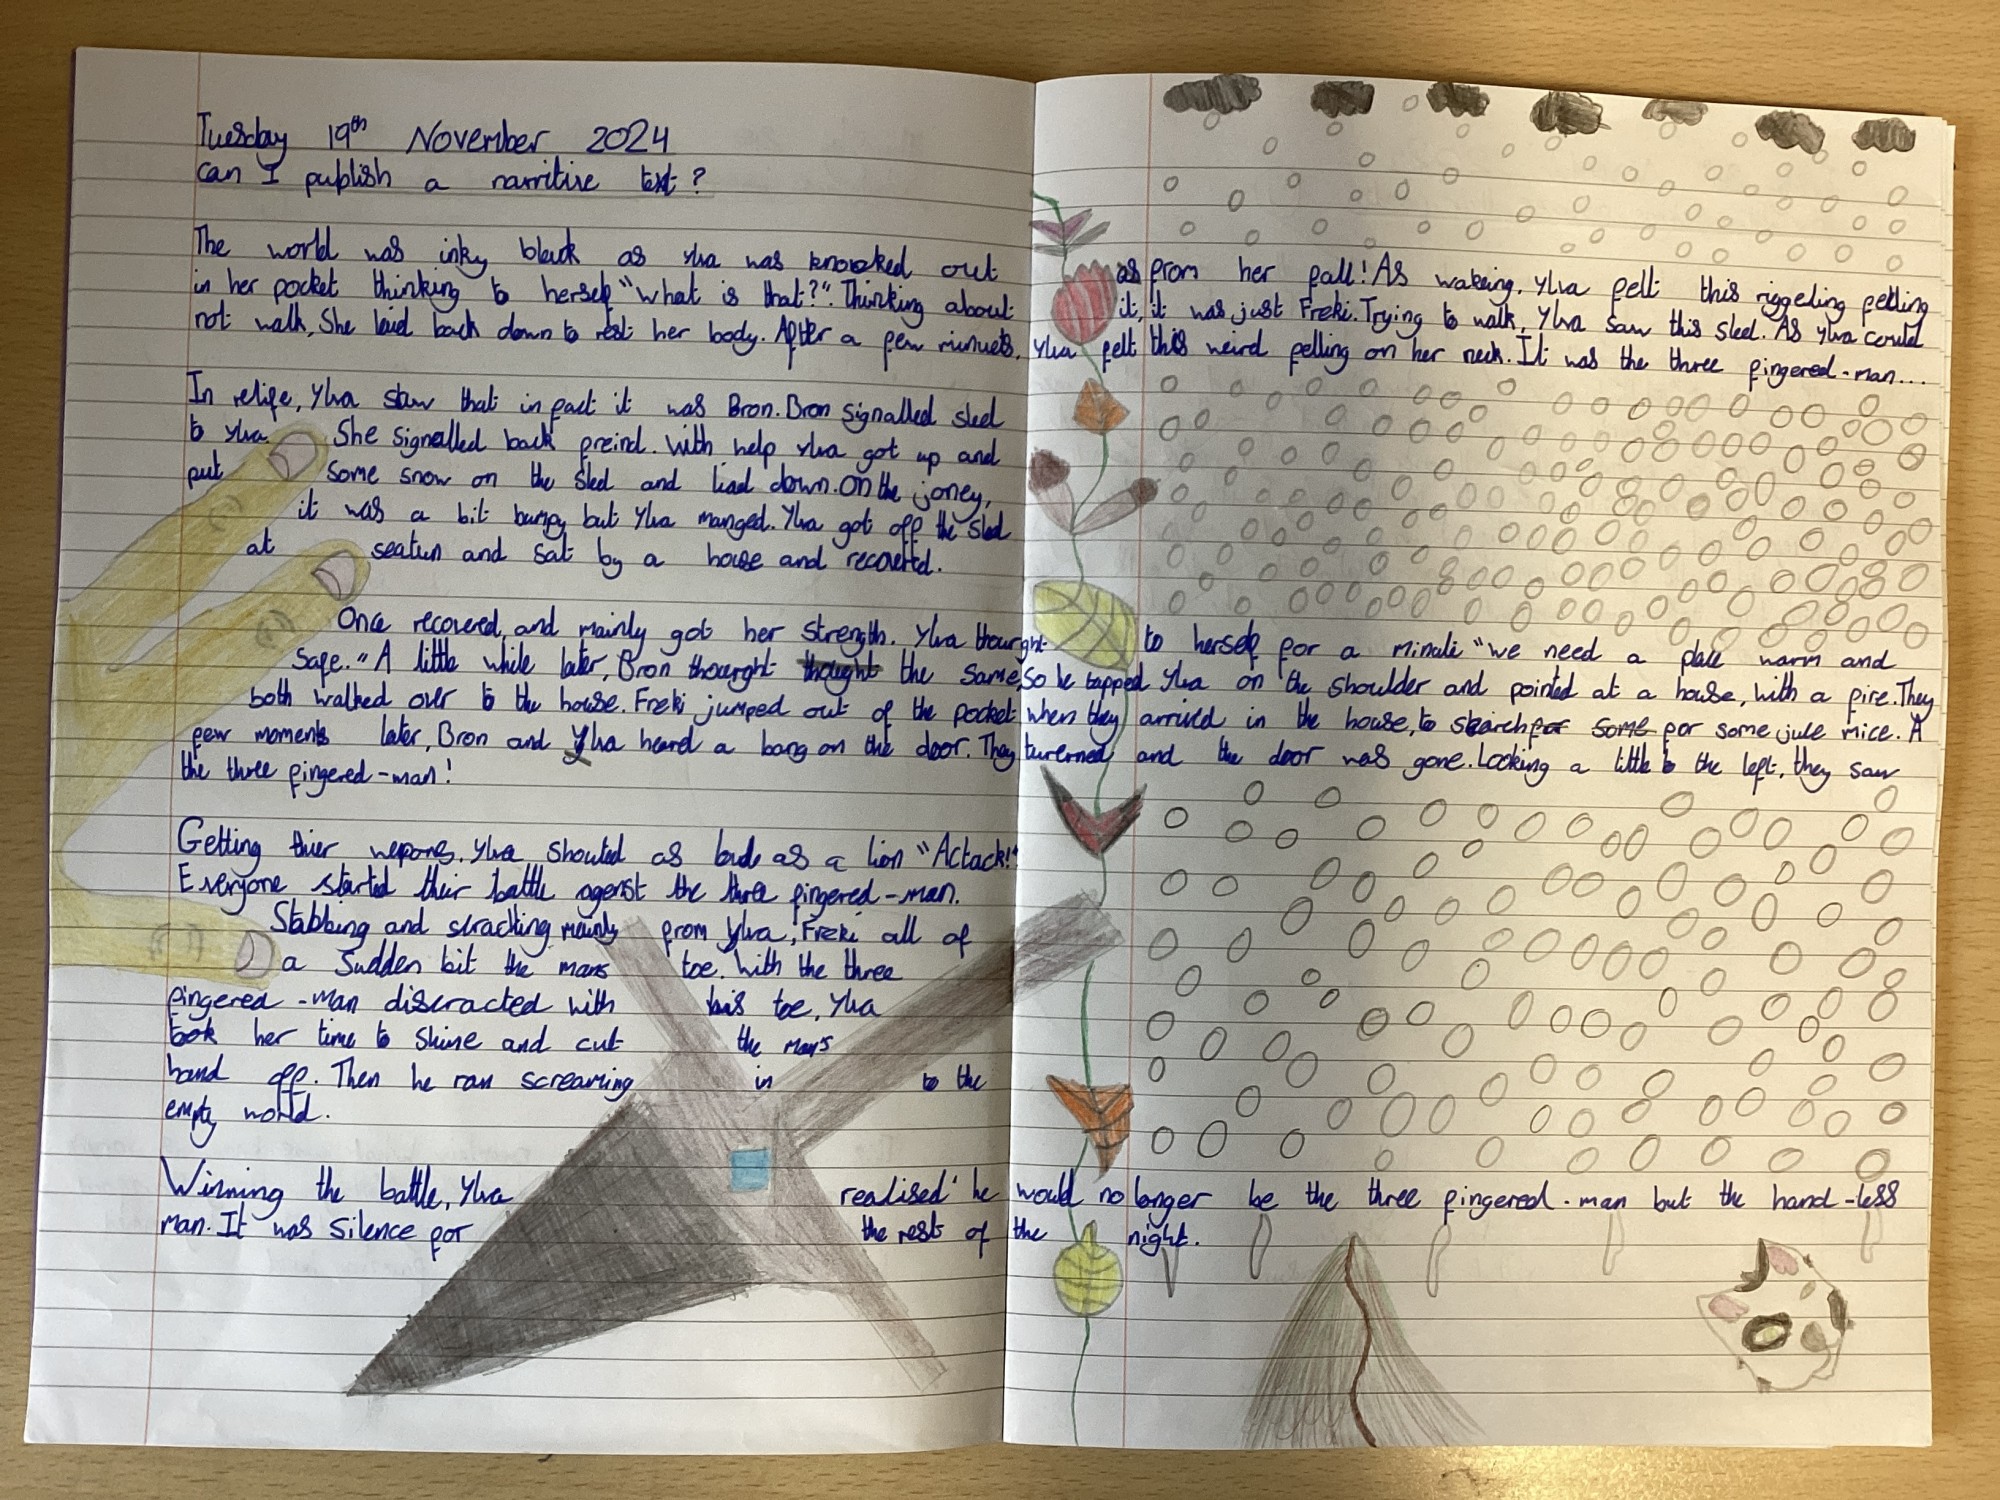 Tuesday 19th November 2024
can I publish a narritive text?
The world was inky black as ylva was knocked out as from her fall! As wakeing, Ylva felt this riggeling felling
in her pocket thinking to herself "what is that?". Thinking about it, it was just Freki. Trying to walk, Ylva saw this sled. As Ylva could
not walk, She laid back down to rest her body. After a few minuets, Ylva felt this weird felling on her neck. It was the three fingered-man...
In relife, Ylva saw that in fact it was Bron. Bron signalled sled
to ylva She signalled back freind. With help ylva got up and
put some snow on the sled and liad down. On the joney,
it was a bit bumpy but Ylva manged. Ylva got off the sled
at seatun and sat by a house and recoverd.
Once recovered, and mainly got her strength. Ylva thourght to herself for a minute "we need a place warm and
safe." A little while later, Bron thourght thought the same, So he tapped Ylva on the shoulder and pointed at a house, with a fire. They
both walked over to the house. Freki jumped out of the pocket when they arrived in the house, to search for some for some jule mice. A
few moments later, Bron and Ylva heard a bang on the door. They turerned and the door was gone. Looking a little to the left, they saw
the three fingered-man!
Getting thier wepons, Ylva shouted as loud as a lion "Actack!"
Everyone started their battle agenst the three fingered-man.
Stabbing and scracthing mainly from Ylva, Freki all of
a Sudden bit the mans toe. With the three
fingered-man discracted with his toe, Ylva
took her time to shine and cut the man's
hand off. Then he ran screaming in to the
empty world.
Winning the battle, Ylva realised he would no longer be the three fingered-man but the hand-less
man. It was silence for the rest of the night.